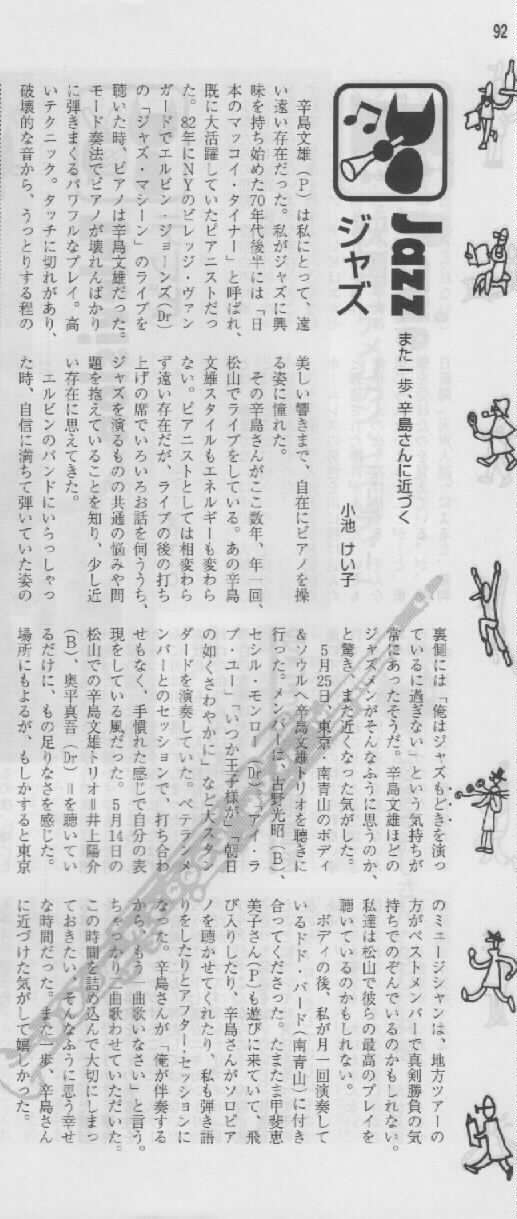 92
Jazz
ジャズ
また一歩、辛島さんに近づく
小池 けい子
辛島文雄(P)は私にとって、遠
い遠い存在だった。私がジャズに興
味を持ち始めた70年代後半には「日
本のマッコイ・タイナー」と呼ばれ、
既に大活躍していたピアニストだっ
た。82年にNYのビレッジ・ヴァン
ガードでエルビン・ジョーンズ(Dr)
の「ジャズ・マシーン」のライブを
聴いた時、ピアノは辛島文雄だった。
モード奏法でピアノが壊れんばかり
に弾きまくるパワフルなプレイ。高
いテクニック。タッチに切れがあり、
破壊的な音から、うっとりする程の
美しい響きまで、自在にピアノを操
る姿に憧れた。
その辛島さんがここ数年、年一回、
松山でライブをしている。あの辛島
文雄スタイルもエネルギーも変わら
ない。ピアニストとしては相変わら
ず遠い存在だが、ライブの後の打ち
上げの席でいろいろお話を伺ううち、
ジャズを演るものの共通の悩みや問
題を抱えていることを知り、少し近
い存在に思えてきた。
エルビンのバンドにいらっしゃっ
た時、自信に満ちて弾いていた姿の
裏側には「俺はジャズもどきを演っ
ているに過ぎない」という気持ちが
常にあったそうだ。辛島文雄ほどの
ジャズメンがそんなふうに思うのか、
と驚き、また近くなった気がした。
5月25日、東京・南青山のボディ
&ソウルへ辛島文雄トリオを聴きに
行った。メンバーは、古野光昭(B)、
セシル・モンロー(Dr)。「アイ・ラ
ブ・ユー」「いつか王子様が」「朝日
の如くさわやかに」など大スタン
ダードを演奏していた。ベテランメ
ンバーとのセッションで、打ち合わ
せもなく、手慣れた感じで自分の表
現をしている風だった。5月14日の
松山での辛島文雄トリオ=井上陽介
(B)、奥平真吾(Dr)=を聴いてい
るだけに、もの足りなさを感じた。
場所にもよるが、もしかすると東京
のミュージシャンは、地方ツアーの
方がベストメンバーで真剣勝負の気
持ちでのぞんでいるのかもしれない。
私達は松山で彼らの最高のプレイを
聴いているのかもしれない。
ボディの後、私が月一回演奏して
いるドド・バード(南青山)に付き
合ってくださった。たまたま甲斐恵
美子さん(P)も遊びに来ていて、飛
び入りしたり、辛島さんがソロピア
ノを聴かせてくれたり、私も弾き語
りをしたりとアフター・セッションに
なった。辛島さんが「俺が伴奏する
から、もう一曲歌いなさい」と言う。
ちゃっかり二曲歌わせていただいた。
この時間を詰め込んで大切にしまっ
ておきたい、そんなふうに思う幸せ
な時間だった。また一歩、辛島さん
に近づけた気がして嬉しかった。